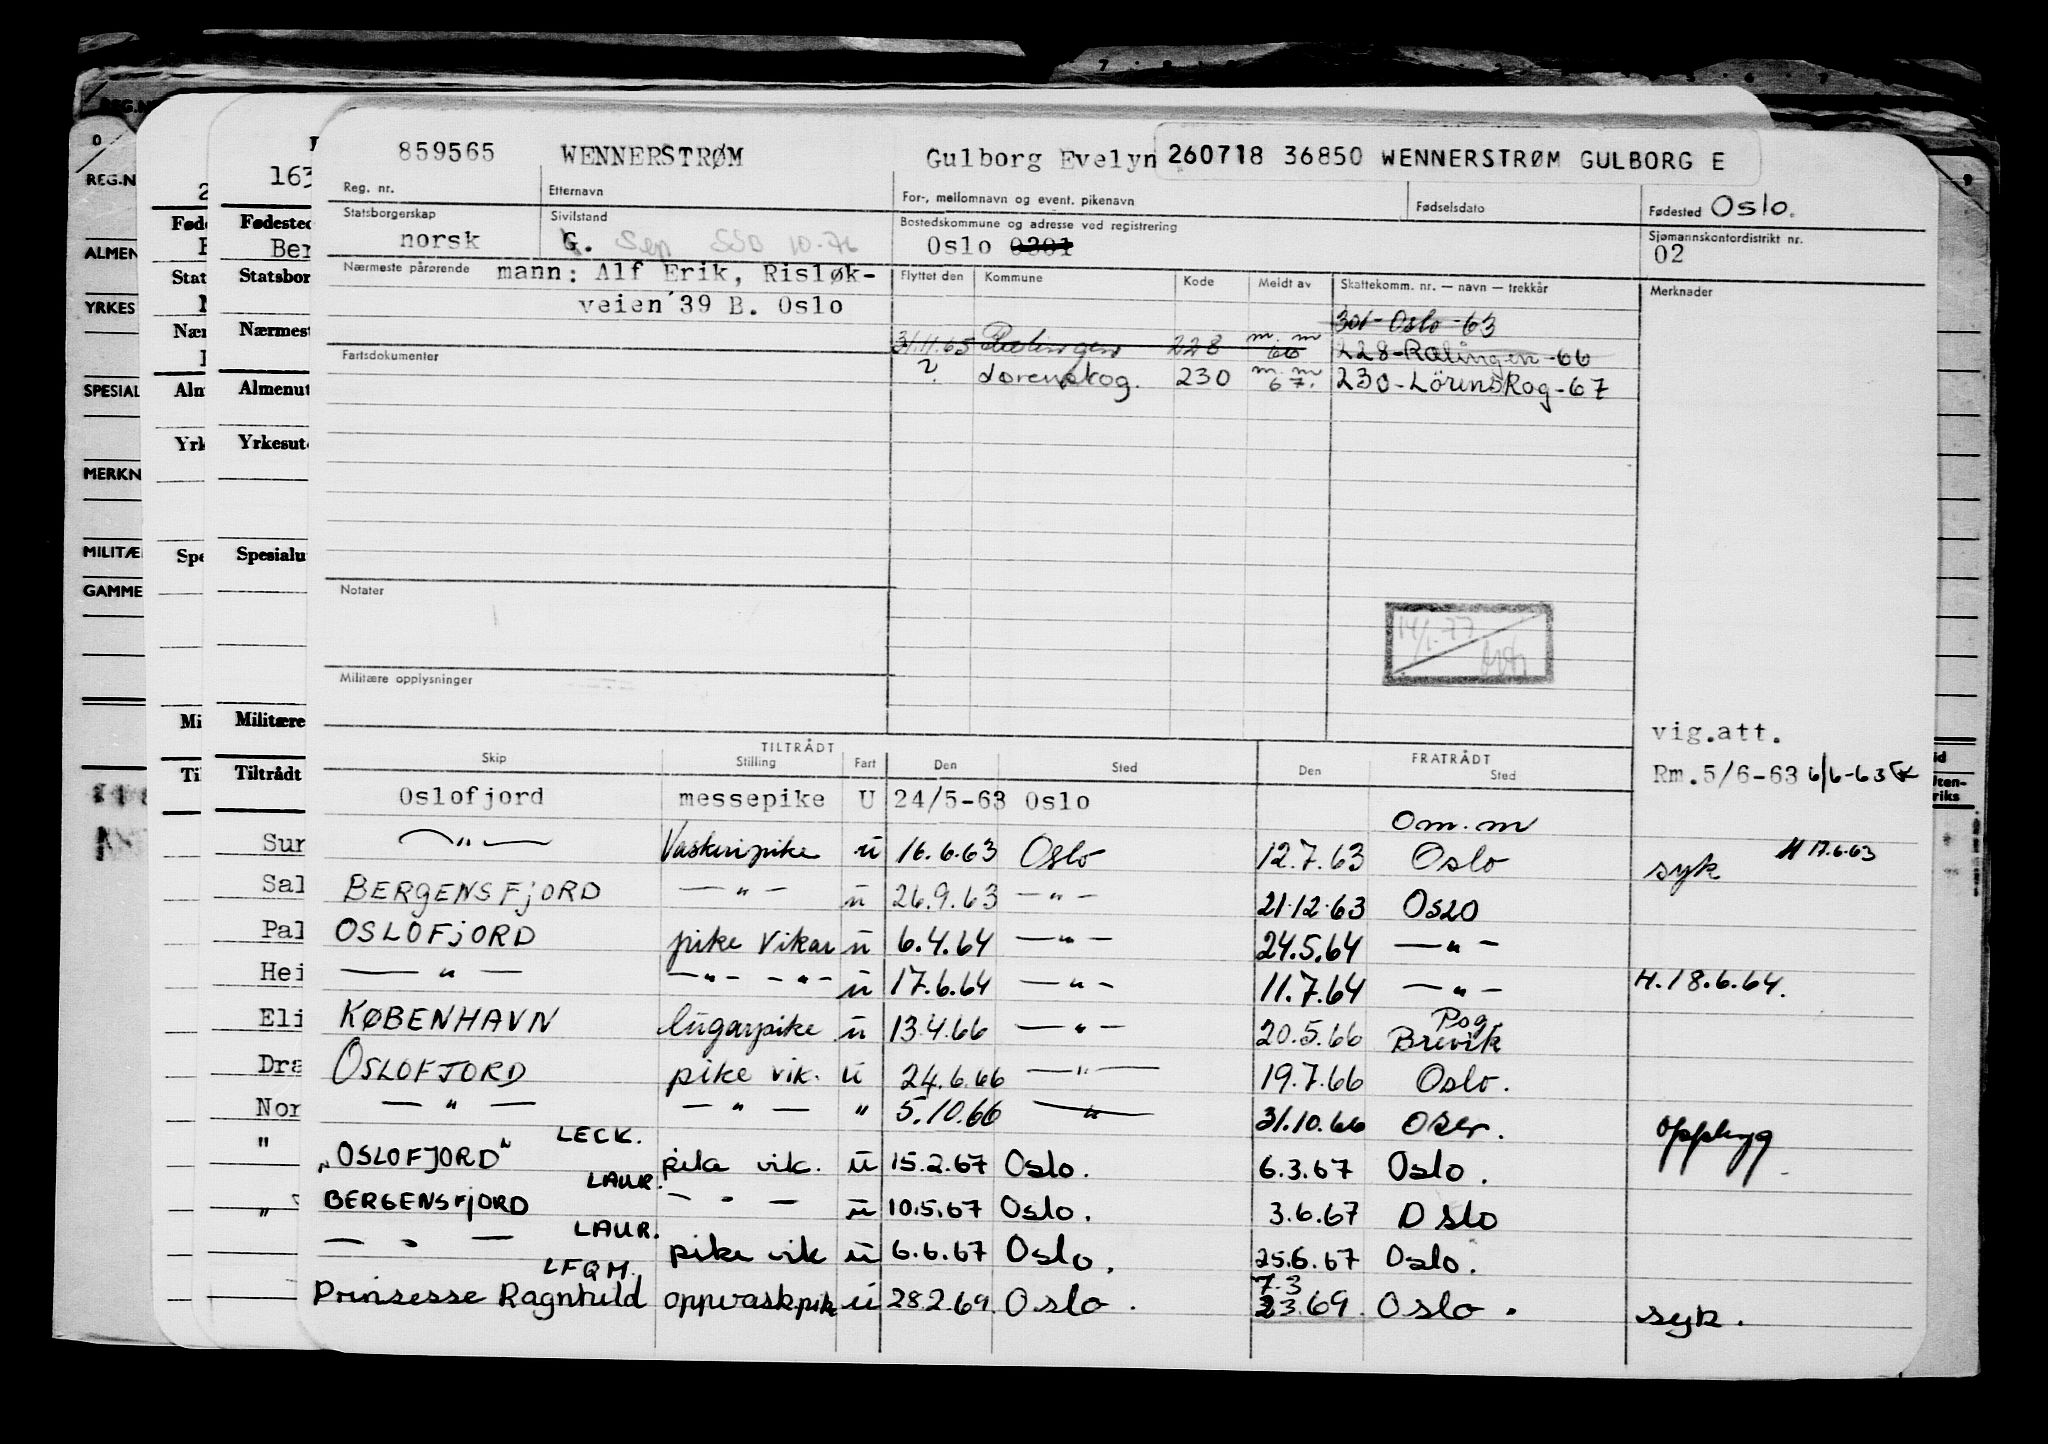 859565 WENNERSTRØM Gulborg Evelyn 260718 36850 WENNERSTRØM GULBORG E
Reg. nr. Etternavn For-, mellomnavn og event. pikenavn Fødselsdato Fødested Oslo.
Statsborgerskap Sivilstand Bostedskommune og adresse ved registrering Sjømannskontordistrikt nr.
norsk G. Sep SSB 10-76 Oslo 0301 02
Nærmeste pårørende mann: Alf Erik, Risløk- Flyttet den Kommune Kode Meldt av Skattekomm. nr. — navn — trekkår Merknader
veien 39 B. Oslo
301-Oslo-63
Fartsdokumenter 31.11.65 Rælingen 228 m.m 66 228-Rælingen-66
? Lørenskog. 230 m.m 67. 230-Lörenskog-67
Notater
14/1-77
Militære opplysninger
vig.att.
Rm.5/6-63 6/6-63
TILTRÅDT FRATRÅDT
Skip Stilling Fart Den Sted Den Sted
Oslofjord messepike U 24/5-63 Oslo
Om.m
—"— Vaskeripike u 16.6.63 Oslo 12.7.63 Oslo syk H 17.6.63
BERGENSFJORD —"— u 26.9.63 —"— 21.12.63 OSLO
OSLOFJORD pike vikar u 6.4.64 —"— 24.5.64 —"—
—"— —"— —"— u 17.6.64 —"— 11.7.64 —"— H.18.6.64.
KØBENHAVN lugarpike u 13.4.66 —"— 20.5.66 Pog. Brevik
OSLOFJORD pike vik. u 24.6.66 —"— 19.7.66 Oslo.
—"— —"— " 5.10.66 —"— 31.10.66 Oslo. oppsagt
LECK.
"OSLOFJORD" pike vik. u 15.2.67 Oslo. 6.3.67 Oslo.
LAUR.
BERGENSFJORD —"— u 10.5.67 Oslo. 3.6.67 Oslo
LAUR.
—"— pike vik u 6.6.67 Oslo. 25.6.67 Oslo.
LFQM.
7.3
Prinsesse Ragnhild oppvaskpik u 28.2.69 Oslo. 23.69. Oslo. syk.
REG.N
ALMEN
YRKES
SPESIAL
MERKN
MILITÆ
GAMME
Fød
Stat
Nær
Alm
Yrk
Spe
Mi
Ti
163
Fødested
Ber
Statsbor
Nærmest
Almenut
Yrkesut
Spesialu
Militære
Tiltrådt
Sur
Sal
Pal
Hei
Eli
Dra
Nor
"
"